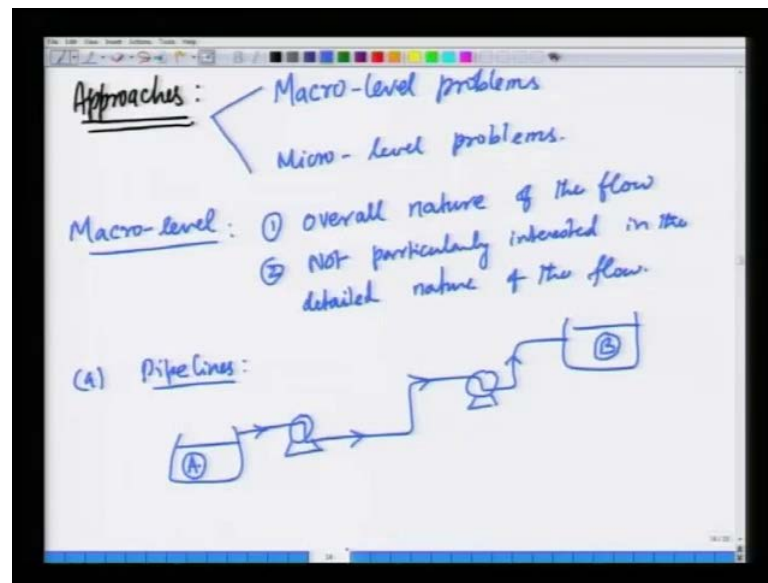 Approaches :
Macro-level problems
Micro-level problems.
Macro-level : ① Overall nature of the flow
② Not particularly interested in the
detailed nature of the flow.
(a) Pipelines :
A
B